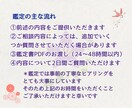 鑑定の主な流れ
①前述の内容をご提供いただきます
②ご相談内容によっては、追加でいく
つか質問させていただく場合あります
③鑑定書PDFのお渡し（24〜48時間以内）
④内容について2日ご質問いただけます
＊鑑定では事前の丁寧なヒアリングを
とても大事にしています
そのため上記のお時間をいただくこと
ご了承いただけますと幸いです